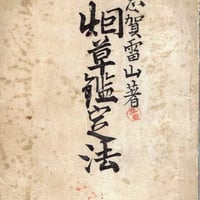 志賀雷山著
烟草鑑定法